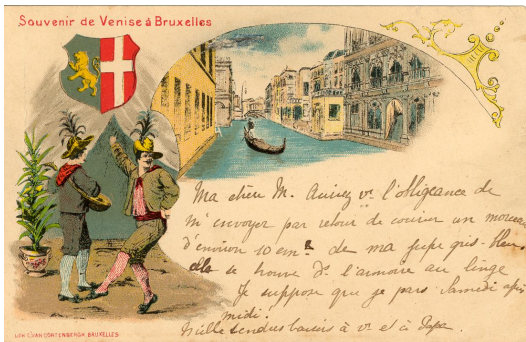 Souvenir de Venise à Bruxelles
Ma chère M. Auriez vs l'obligeance de
m'envoyer par retour de courrier un morceau
d'environ 10 cm² de ma jupe gris-bleu
elle se trouve ds l'armoire au linge
Je suppose que je pars Samedi après
midi.
Mille tendres baisers à vs et à Papa.
LITH. L. VAN CORTENBERGH. BRUXELLES